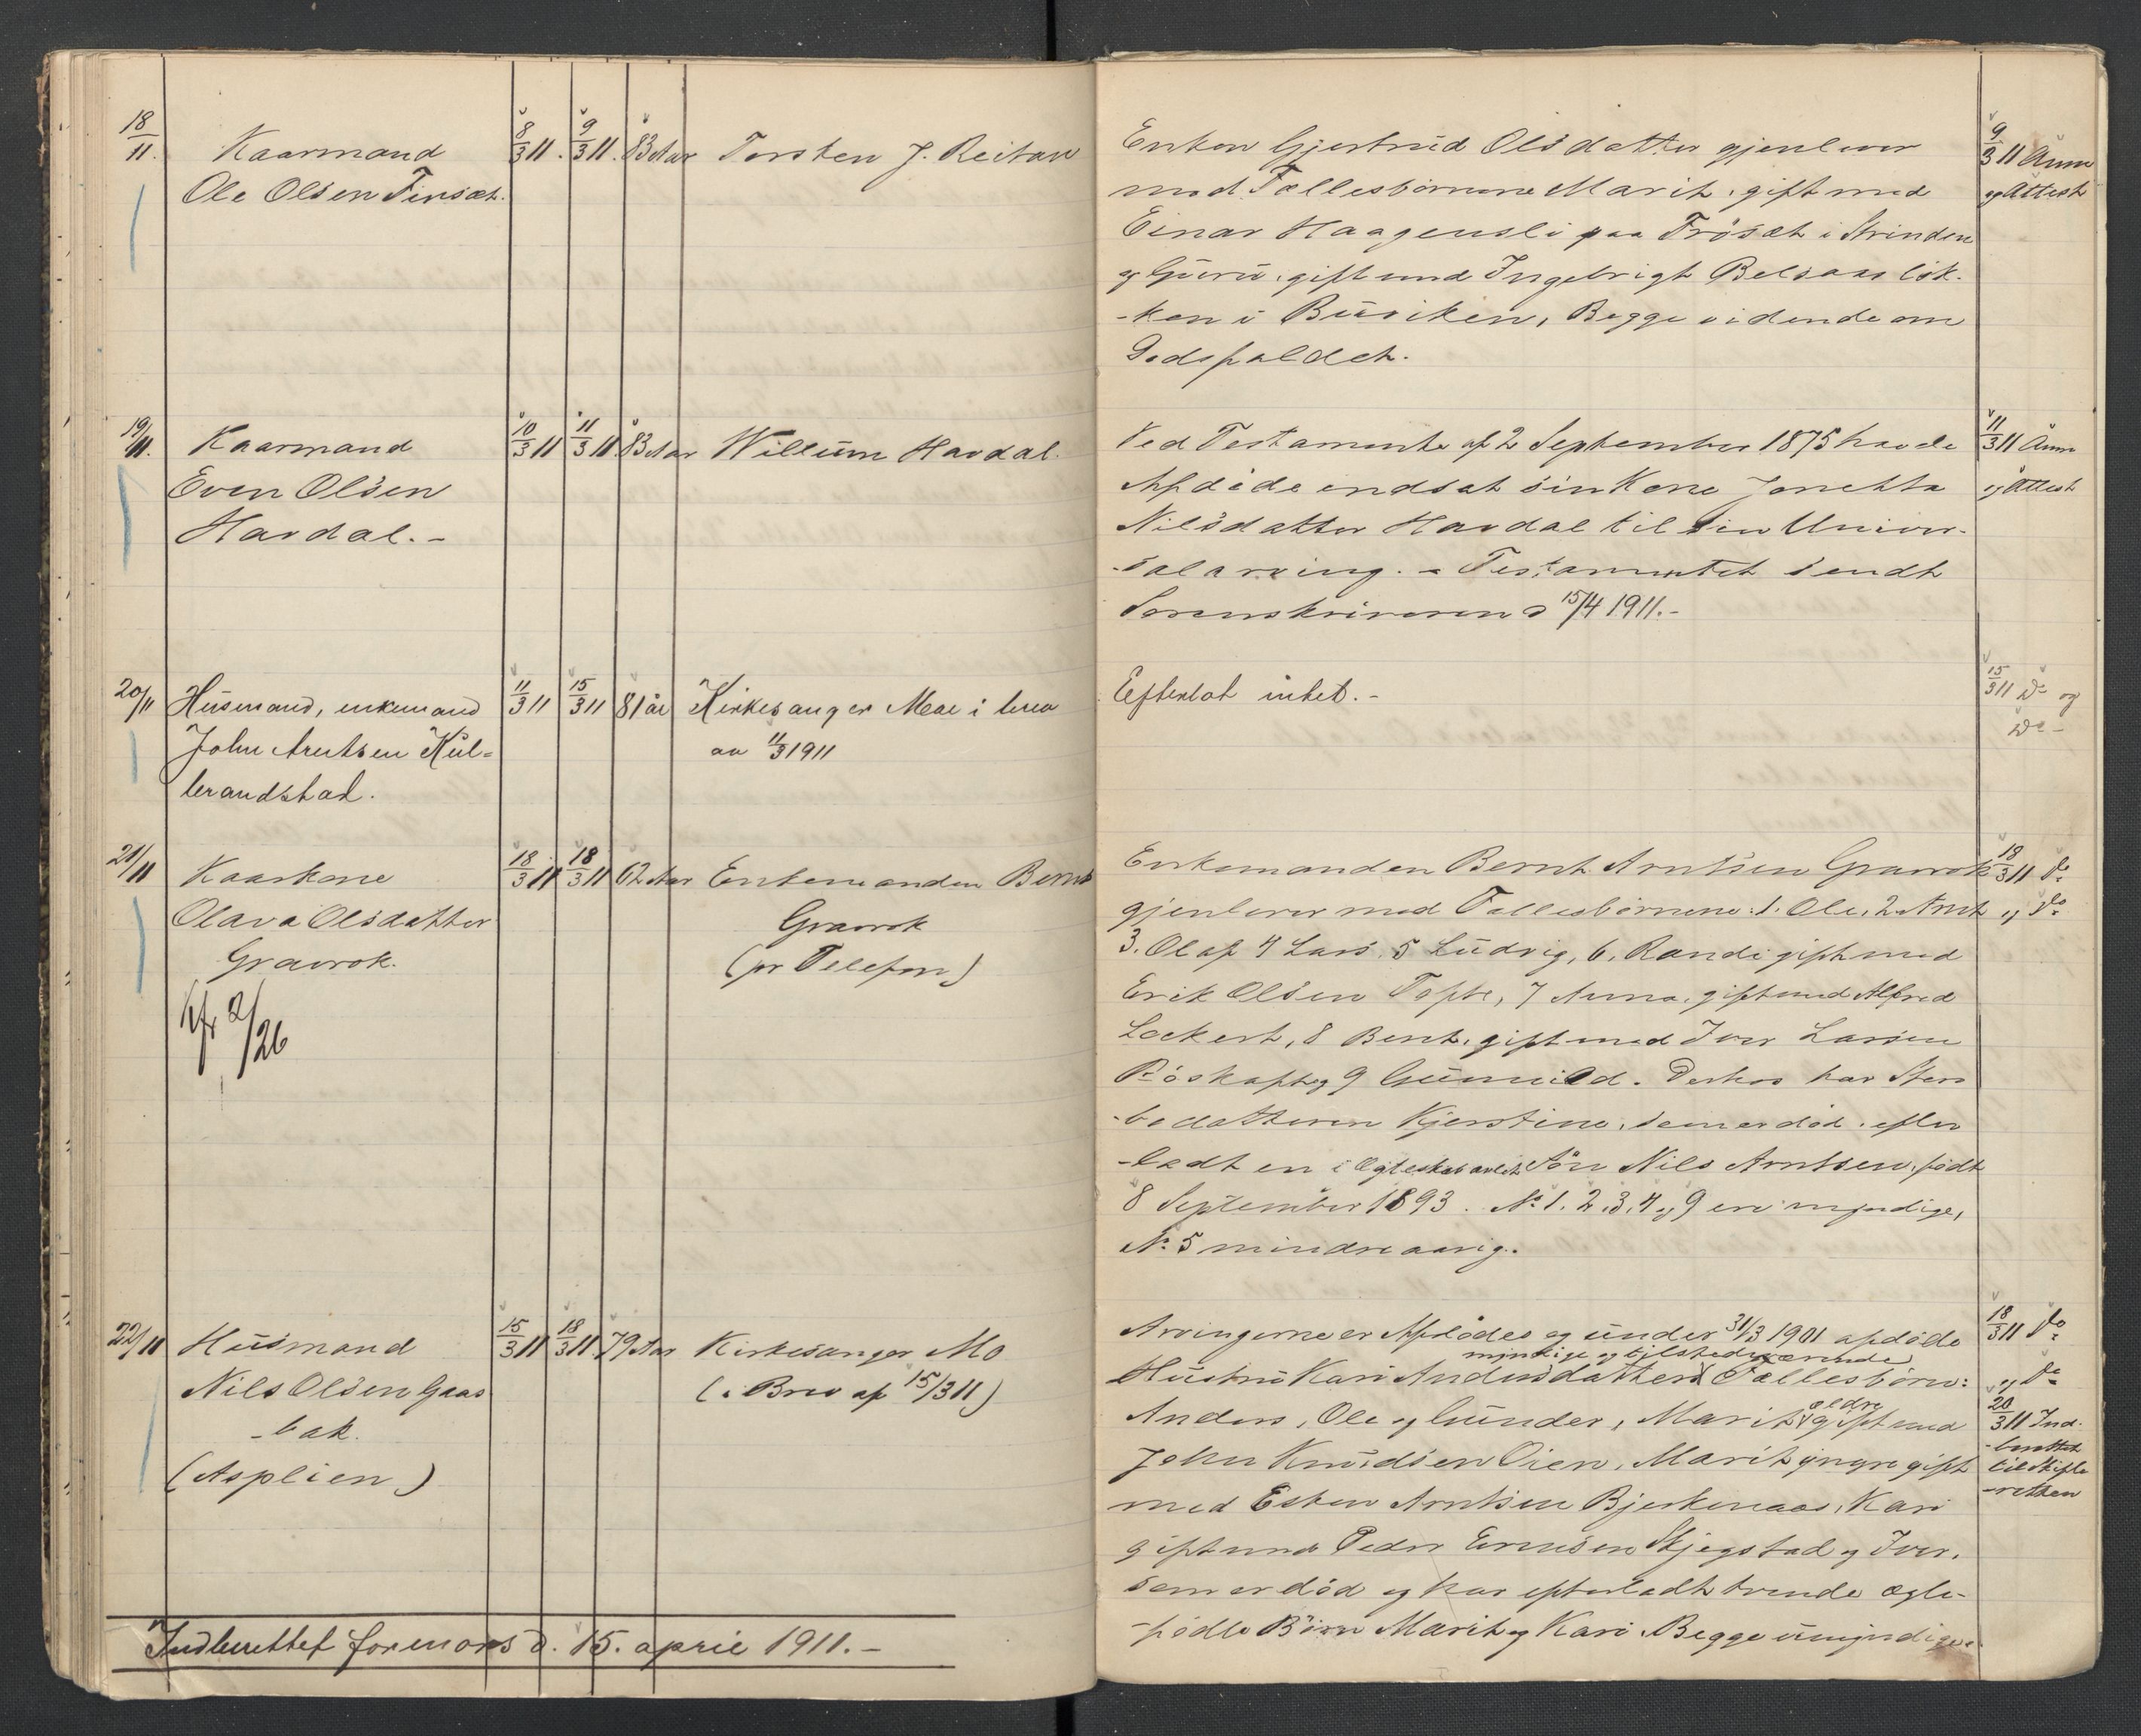 18/11. Kaarmand 8/3 11. 9/3 11. 83 Aar Torsten J. Reitan
Ole Olsen Finsæt.
Enken Gjertrud Olsdatter gjenlever
med Fællesbørnene Marit, gift med
Einar Haagensli paa Frøsæt i Strinden
og Guru, gift med Ingebrigt Belsaas løk-
-ken i Buviken, Begge vidende om
Dødsfaldet.
9/3 11 Anm
og Attest
19/11. Kaarmand 10/3 11 11/3 11 83 Aar Willum Havdal.
Even Olsen
Havdal. -
Ved Testamente af 2 September 1875 havde
Afdøde indsat sin Kone Jonetta
Nilsdatter Havdal til sin Univer-
-salarving. - Testamentet sendt
Sorenskriveren d 15/4 1911. -
11/3 11 Anm
og Attest
20/11 Husmand, enkemand 11/3 11 15/3 11 81 år Kirkesanger Moe i brev
John Arntsen Kul= av 11/3 1911
brandstad.
Efterlot intet. -
15/3 11 Do og
Do -
21/11 Kaarkone 18/3 11 18/3 11 62 Aar Enkemanden Bernt
Olava Olsdatter Gravrok
Gravrok. (pr Telefon)
Kfr 2/26
Enkemanden Bernt Arntsen Gravrok
gjenlever med Fællesbørnene: 1. Ole, 2 Arnt
3. Olaf 4 Lars. 5 Ludvig, 6, Randi gift med
Erik Olsen Tofte, 7 Anna, gift med Alfred
Lockert, 8 Berit, gift med Iver Larsen
Røskaft og 9 Gunnild. Derhos har Sterv
-bodatteren Kjerstine, som er død, efter
-ladt en i Ægteskab avlet Søn Nils Arntsen, født
8 September 1893. No 1. 2. 3. 4 og 9 ere myndige,
No 5 mindreaarig.
18/3 11 Do
og Do
22/11 Husmand 15/3 11 18/3 11. 79 Aar Kirkesanger Mo
Nils Olsen Gaas (i Brev af 15/3 11)
-bak.
(Asplien)
Arvingerne er Afdødes og under 31/3 1901 afdøde
myndige og tilstedeværende
Hustru Kari Andersdatters Fællesbørn:
Anders, Ole og Gunder, Marit ældre gift med
John Knudsen Øien, Marit yngre gift
med Esten Arntsen Bjerkenaas, Kari
gift med Peder Evensen Skjegstad og Iver,
som er død og har efterladt tvende ægte-
-fødte Børn Marit og Kari. Begge umyndige.
18/3 11 Do
og Do
20/3 11 Ind-
-berettet
til Skifte
-retten
Indberettet foremors d. 15. april 1911. -